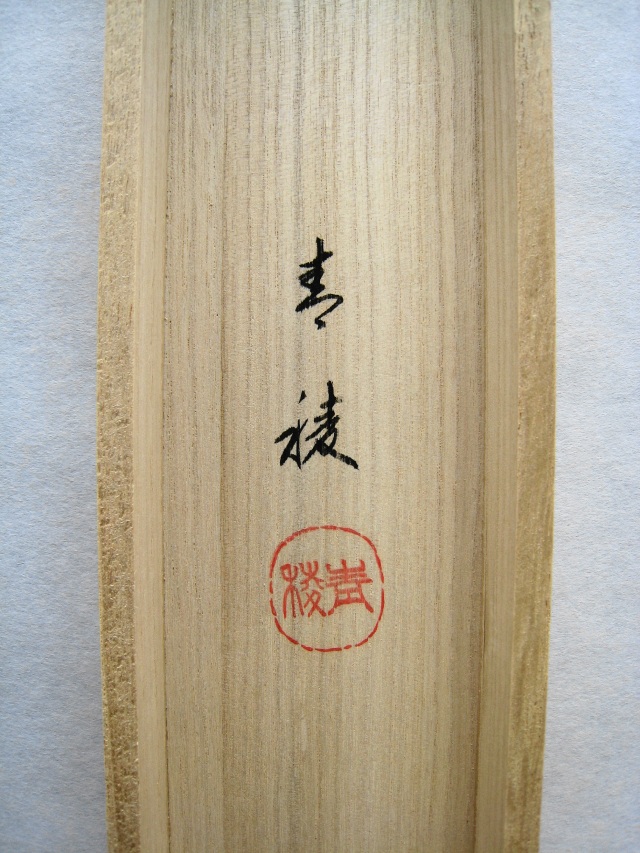 青稜
青稜